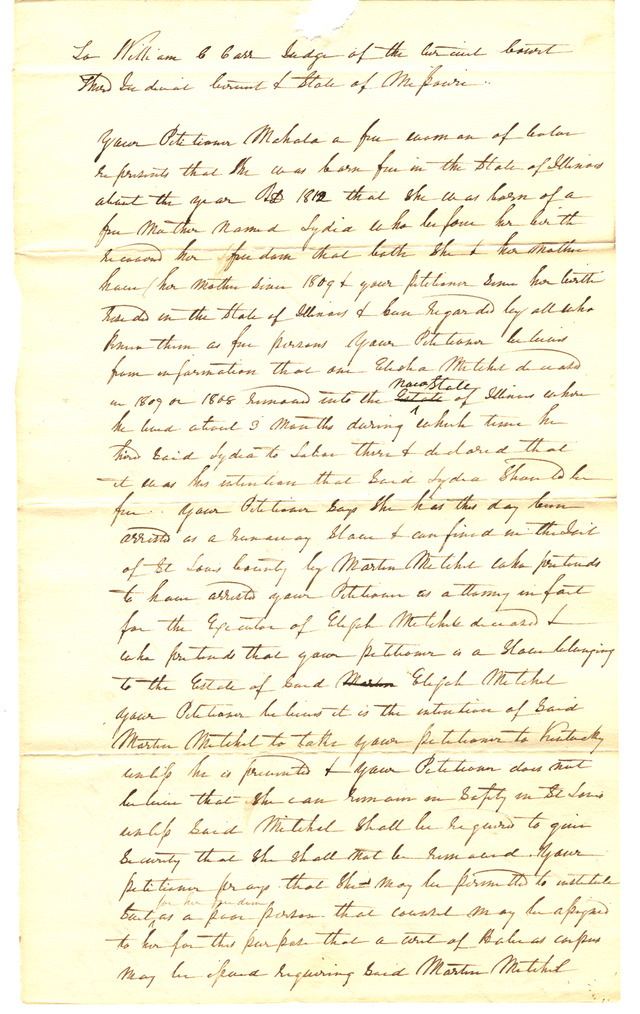 To William C Carr Judge of the Circuit Court
Third Judicial Circuit & State of Missouri
Your Petitioner Mahala a free woman of Color
represents that she was born free in the State of Illinois
about the year AD 1812 that she was born of a
free Mother named Lydia who before her birth
recovered her freedom that both she & her Mother
have (her Mother since 1809 & your petitioner since her birth
resided in the State of Illinois & been regarded by all who
knew them as free persons Your Petitioner believes
from information that one Elisha Mitchel deceased
in 1809 or 1808 removed into the Estate now State of Illinois where
he lived about 3 Months during which time he
hired said Lydia to Labor there & declared that
it was his intention that said Lydia should be
free. Your Petitioner says she has this day been
arrested as a runaway Slave & confined in the Jail
of St Louis County by Martin Mitchel who pretends
to have arrested your Petitioner as attorney in fact
for the Executor of Elijah Mitchel deceased &
who pretends that your petitioner is a Slave belonging
to the Estate of said Martin Elijah Mitchel
Your Petitioner believes it is the intention of said
Martin Mitchel to take your petitioner to Kentucky
unless he is prevented & your Petitioner does not
believe that she can remain in safety in St Louis
unless said Mitchel shall be required to give
Security that she shall not be removed. Your
petitioner prays that she may be permitted to institute
suit for her freedom as a poor person that counsel may be assigned
to her for this purpose that a writ of Habeas corpus
may be issued requiring said Martin Mitchel